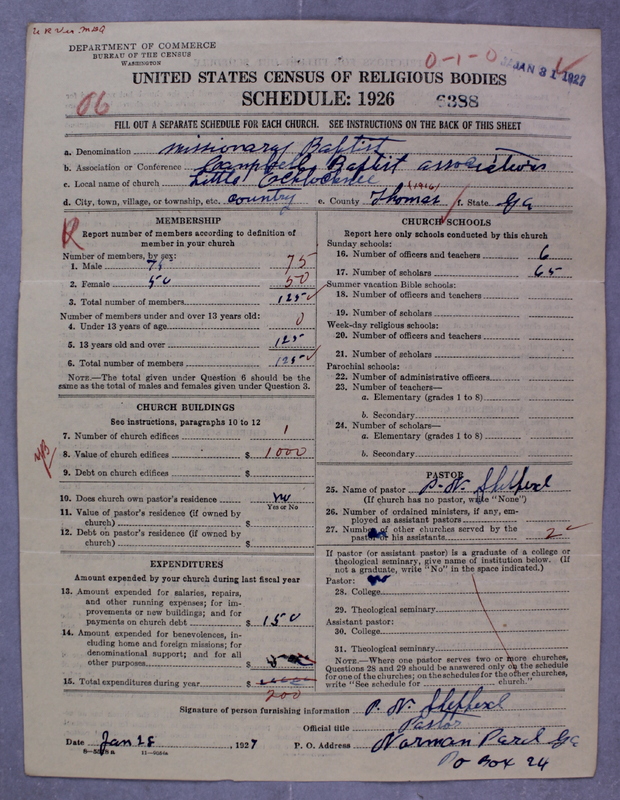 DEPARTMENT OF COMMERCE
BUREAU OF THE CENSUS
WASHINGTON
0-1-0
JAN 31 1927
UNITED STATES CENSUS OF RELIGIOUS BODIES
06
SCHEDULE: 1926
6388
FILL OUT A SEPARATE SCHEDULE FOR EACH CHURCH. SEE INSTRUCTIONS ON THE BACK OF THIS SHEET
a. Denomination Missionary Baptist
b. Association or Conference Campbell Baptist association
c. Local name of church Little Ochlocknee
(1916)
d. City, town, village, or township, etc. country e. County Thomas f. State Ga
MEMBERSHIP
Report number of members according to definition of member in your church
Number of members, by sex:
1. Male 75 75
2. Female 50 50
3. Total number of members 125
Number of members under and over 13 years old:
4. Under 13 years of age 0
5. 13 years old and over 125
6. Total number of members 125
NOTE.—The total given under Question 6 should be the
same as the total of males and females given under Question 3.
CHURCH BUILDINGS
See instructions, paragraphs 10 to 12
7. Number of church edifices 1
8. Value of church edifices $ 1000
9. Debt on church edifices $
10. Does church own pastor's residence no
Yes or No
11. Value of pastor's residence (if owned by
church) $
12. Debt on pastor's residence (if owned by
church) $
EXPENDITURES
Amount expended by your church during last fiscal year
13. Amount expended for salaries, repairs,
and other running expenses; for im-
provements or new buildings; and for
payments on church debt $ 150
14. Amount expended for benevolences, in-
cluding home and foreign missions; for
denominational support; and for all
other purposes $
15. Total expenditures during year $
200
CHURCH SCHOOLS
Report here only schools conducted by this church
Sunday schools:
16. Number of officers and teachers 6
17. Number of scholars 65
Summer vacation Bible schools:
18. Number of officers and teachers
19. Number of scholars
Week-day religious schools:
20. Number of officers and teachers
21. Number of scholars
Parochial schools:
22. Number of administrative officers
23. Number of teachers—
a. Elementary (grades 1 to 8)
b. Secondary
24. Number of scholars—
a. Elementary (grades 1 to 8)
b. Secondary
PASTOR
25. Name of pastor P. N. Shepperd
(If church has no pastor, write "None")
26. Number of ordained ministers, if any, em-
ployed as assistant pastors
27. Number of other churches served by the
pastor or his assistants 2
If pastor (or assistant pastor) is a graduate of a college or
theological seminary, give name of institution below. (If
not a graduate, write "No" in the space indicated.)
Pastor: no
28. College
29. Theological seminary
Assistant pastor:
30. College
31. Theological seminary
NOTE.—Where one pastor serves two or more churches,
Questions 28 and 29 should be answered only on the schedule
for one of the churches; on the schedules for the other churches,
write "See schedule for church."
Signature of person furnishing information P. N. Shepperd
Official title Pastor
Date Jan 28 1927 P. O. Address Norman Park Ga
11—9684a
Po Box 24